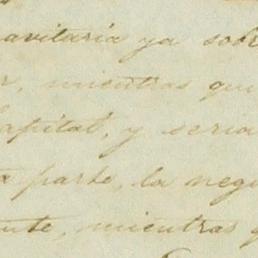 avitaria ya sobr
r, mientras que
Capital, y seria
a parte, la nego
ente, mientras q